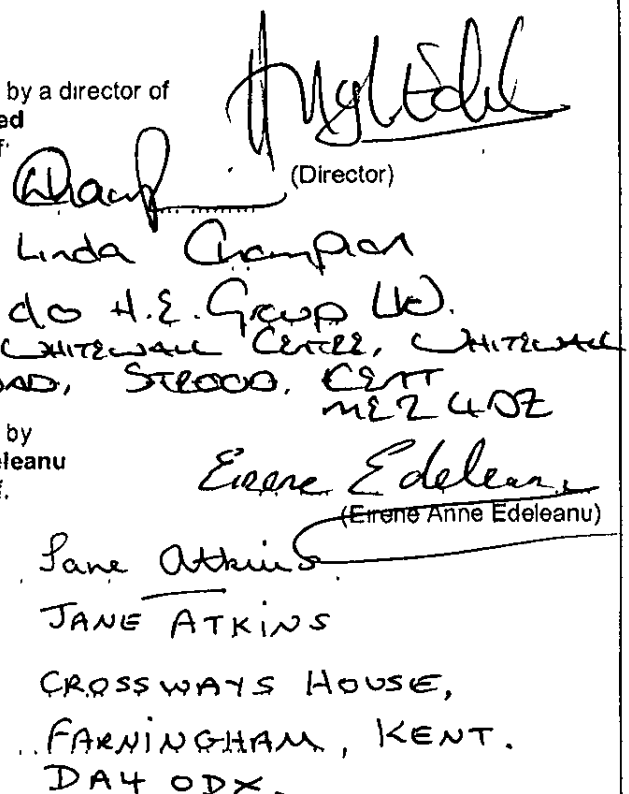 by a director of
ed
f.
(Director)
Linda Champion
c/o H.E. Group Ltd.
WHITEWALL CENTRE, WHITEWALL
OAD, STROOD, KENT
ME2 4DZ
by
eleanu
f.
Eirene Edeleanu
(Eirene Anne Edeleanu)
Jane Atkins
JANE ATKINS
CROSSWAYS HOUSE,
FARNINGHAM, KENT.
DA4 0DX.